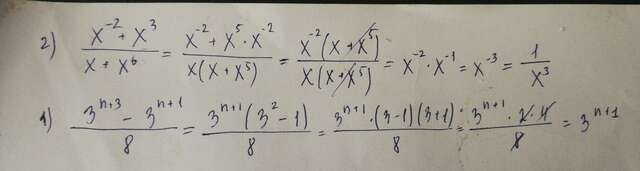 2) \frac{x^{-2} + x^3}{x + x^6} = \frac{x^{-2} + x^5 \cdot x^{-2}}{x(x + x^5)} = \frac{x^{-2}(x + x^5)}{x(x + x^5)} = x^{-2} \cdot x^{-1} = x^{-3} = \frac{1}{x^3}
1) \frac{3^{n+3} - 3^{n+1}}{8} = \frac{3^{n+1}(3^2 - 1)}{8} = \frac{3^{n+1} \cdot (3-1)(3+1)}{8} = \frac{3^{n+1} \cdot 2 \cdot 4}{8} = 3^{n+1}